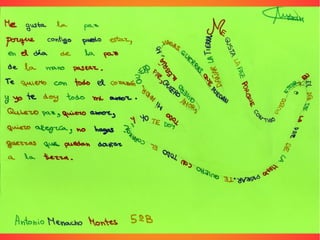 Me gusta la paz
porque contigo puedo estar,
en el día de la paz
de la mano pasear.
Te quiero con todo el corazón
y yo te doy todo mi amor.
Quiero paz, quiero amor,
quiero alegría, no hagas
guerras que puedan dañar
a la tierra.
ME GUSTA LA PAZ PORQUE CONTIGO
DÍA DE LA PAZ DE LA
MANO PASEAR. TE QUIERO CON TODO EL
Y YO TE DOY TODO MI AMOR.
HAGAS GUERRAS QUE PUEDAN
Antonio Menacho Montes 5ºB